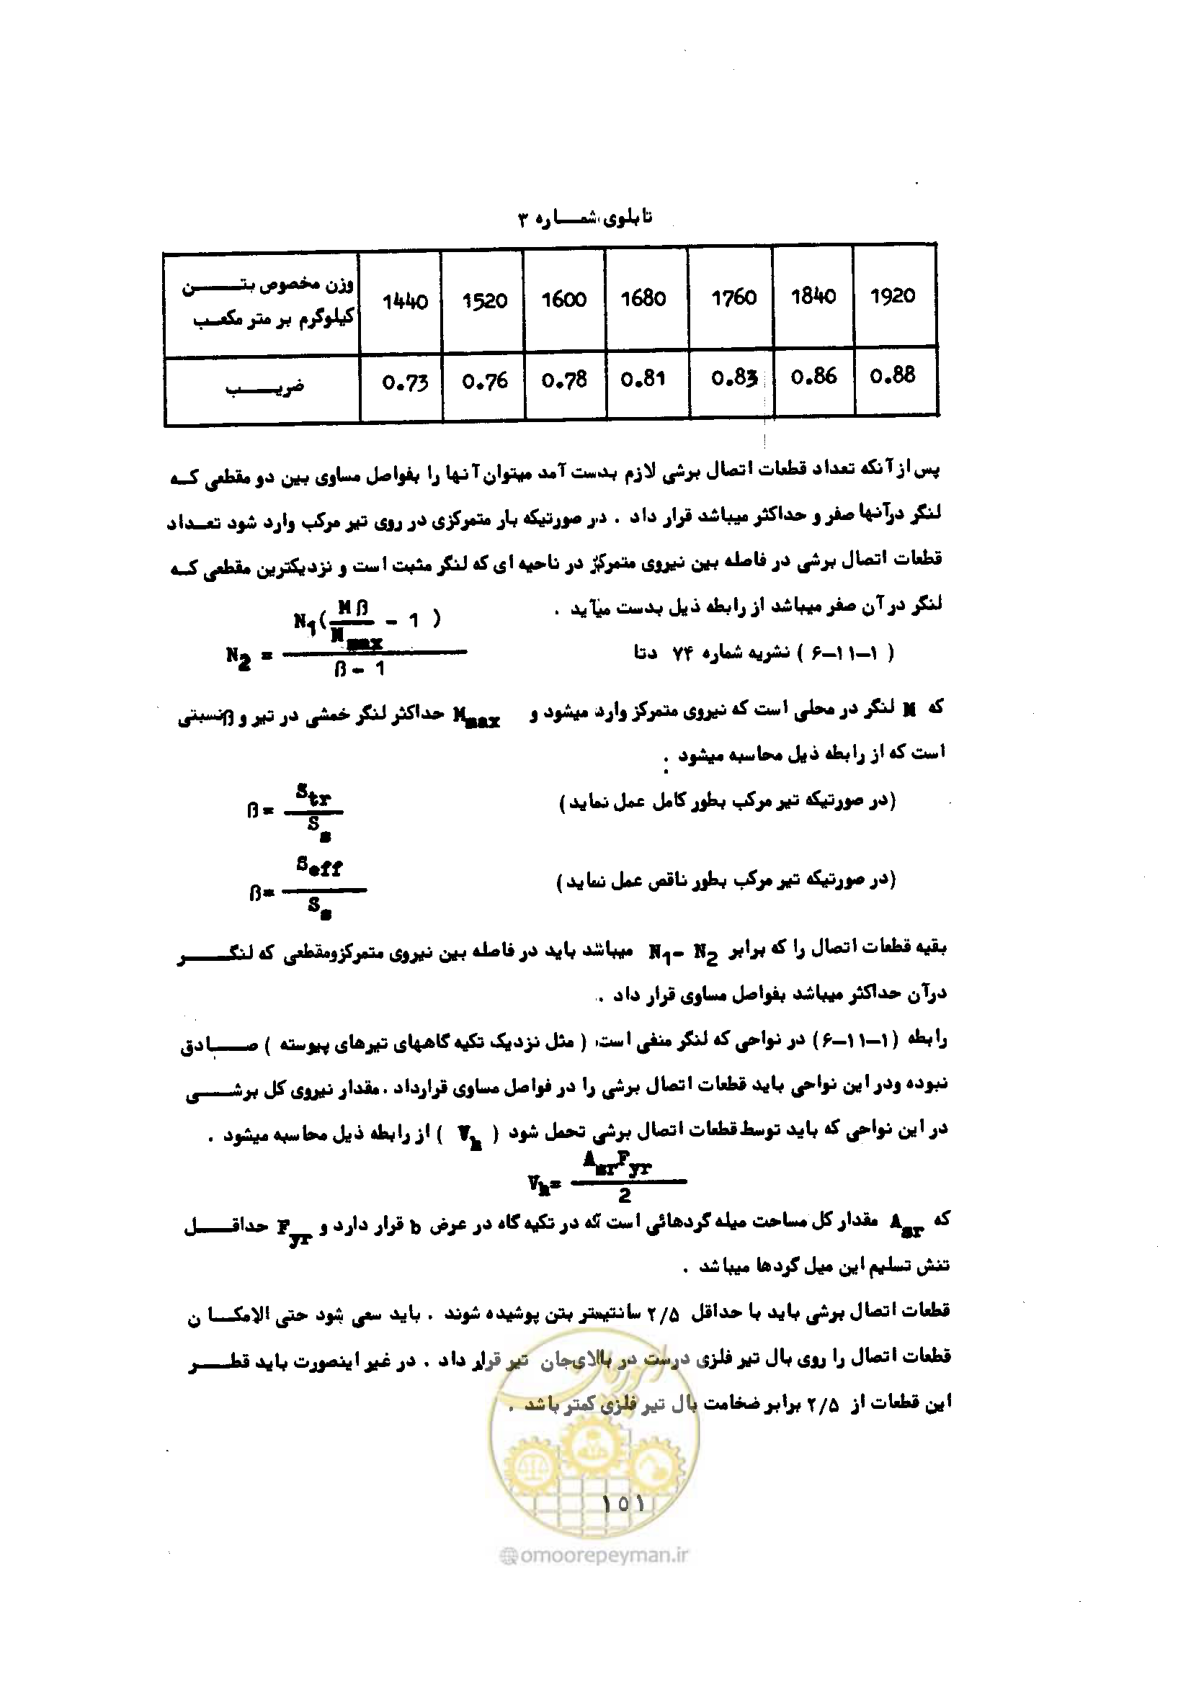 تابلوی شماره ۳
وزن مخصوص بتن 1440 1520 1600 1680 1760 1840 1920
کیلوگرم بر متر مکعب
ضریب 0.73 0.76 0.78 0.81 0.83 0.86 0.88
پس از آنکه تعداد قطعات اتصال برشی لازم بدست آمد میتوان آنها را بفواصل مساوی بین دو مقطعی که
لنگر درآنها صفر و حداکثر میباشد قرار داد . در صورتیکه بار متمرکزی در روی تیر مرکب وارد شود تعداد
قطعات اتصال برشی در فاصله بین نیروی متمرکز در ناحیه ای که لنگر مثبت است و نزدیکترین مقطعی که
لنگر در آن صفر میباشد از رابطه ذیل بدست میآید .
(۶-۱۱-۱) نشریه شماره ۷۴ دتا N2 = N1(Mβ/Mmax - 1) / β - 1
که M لنگر در محلی است که نیروی متمرکز وارد میشود و Mmax حداکثر لنگر خمشی در تیر و β نسبتی
است که از رابطه ذیل محاسبه میشود :
(در صورتیکه تیر مرکب بطور کامل عمل نماید) β = Str / Ss
(در صورتیکه تیر مرکب بطور ناقص عمل نماید) β = Seff / Ss
بقیه قطعات اتصال را که برابر N1 - N2 میباشد باید در فاصله بین نیروی متمرکزومقطعی که لنگر
درآن حداکثر میباشد بفواصل مساوی قرار داد .
رابطه (۶-۱۱-۱) در نواحی که لنگر منفی است ( مثل نزدیک تکیه گاههای تیرهای پیوسته ) صادق
نبوده ودر این نواحی باید قطعات اتصال برشی را در فواصل مساوی قرارداد . مقدار نیروی کل برشی
در این نواحی که باید توسط قطعات اتصال برشی تحمل شود ( Vh ) از رابطه ذیل محاسبه میشود .
Vh = AsrFyr / 2
که Asr مقدار کل مساحت میله گردهائی است که در تکیه گاه در عرض b قرار دارد و Fyr حداقل
تنش تسلیم این میل گردها میباشد .
قطعات اتصال برشی باید با حداقل ۲/۵ سانتیمتر بتن پوشیده شوند . باید سعی شود حتی الامکان
قطعات اتصال را روی بال تیر فلزی درست در بالای جان تیر قرار داد . در غیر اینصورت باید قطر
این قطعات از ۲/۵ برابر ضخامت بال تیر فلزی کمتر باشد .
امور پیمان
۱۵۱
@omoorepeyman.ir